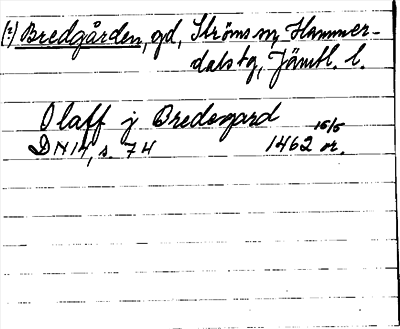 (?) Bredgården, gd, Ströms sn, Hammer-
dals tg, Jämtl. l.
Olaff j Bredegard
DN 14, s. 74 1462 15/5 or.